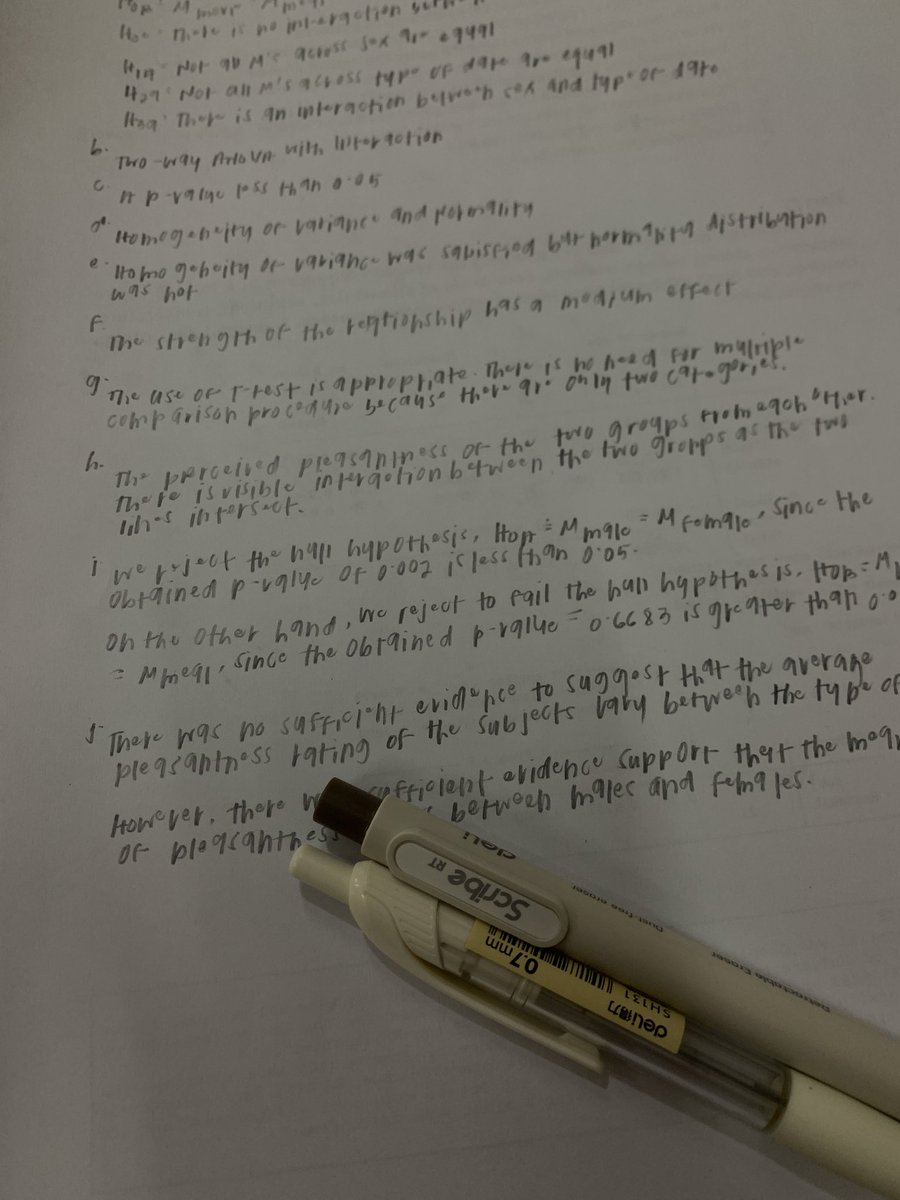 H0c: There is no interaction between
H1a: Not all M's across sex are equal
H2a: Not all M's across type of date are equal
H3a: There is an interaction between sex and type of date
b. Two-way ANOVA with Interaction
c. A p-value less than 0.05
d. Homogeneity of variance and Normality
e. Homogeneity of variance was satisfied but normality distribution
was not
f. The strength of the relationship has a medium effect
g. The use of T-test is appropriate. There is no need for multiple
comparison procedure because there are only two categories.
h. The perceived pleasantness of the two groups from each other.
There is visible interaction between the two groups as the two
lines intersect.
i We reject the null hypothesis, H0A = M male = M female, since the
obtained p-value of 0.002 is less than 0.05.
On the other hand, we reject to fail the null hypothesis, H0B = M
= M meal, since the obtained p-value = 0.6683 is greater than 0.0
j. There was no sufficient evidence to suggest that the average
pleasantness rating of the subjects vary between the type of
However, there sufficient evidence support that the
of pleasantness between males and females.
deli
Scribe RT
Dust-free eraser
Retractable Eraser
0.7mm
deli得力
SH131